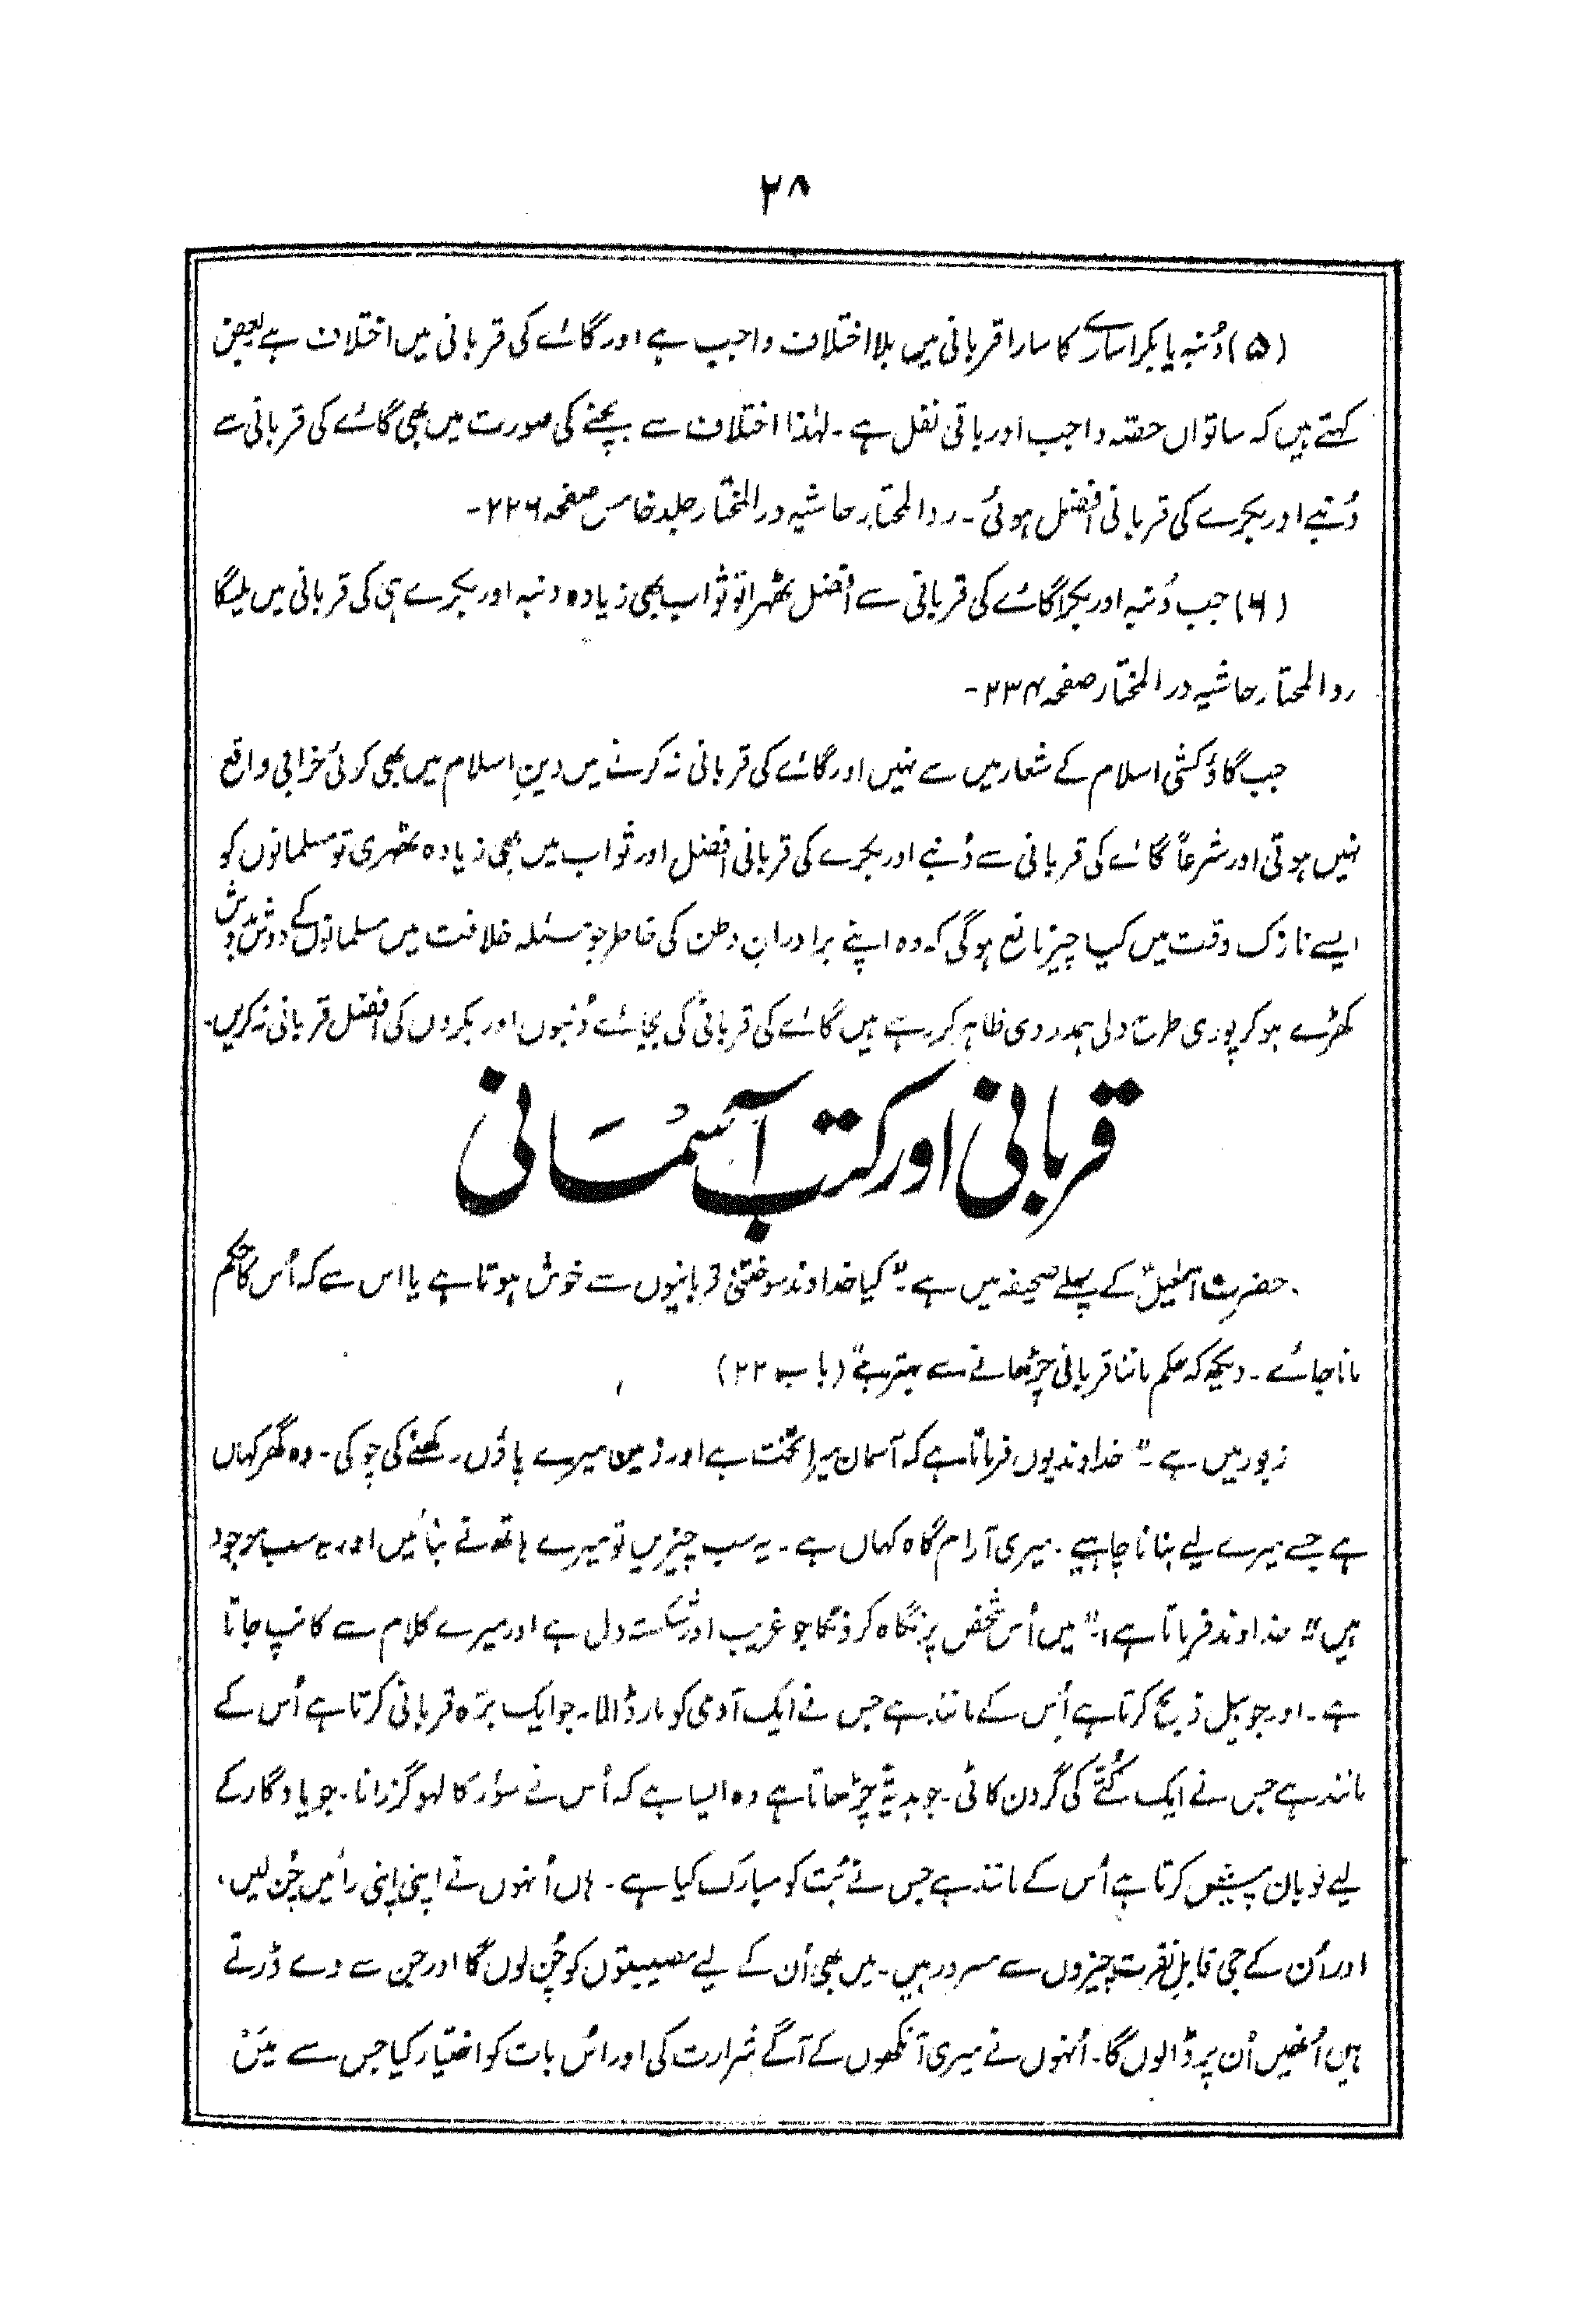 ۲۸
(۵) دُنبہ یا بکرا سارے کا سارا قربانی میں بلا اختلاف واجب ہے اور گائے کی قربانی میں اختلاف ہے بعض
کہتے ہیں کہ ساتواں حصّہ واجب اور باقی نفل ہے۔ لہٰذا اختلاف سے بچنے کی صورت میں بھی گائے کی قربانی سے
دُنبے اور بکرے کی قربانی افضل ہوئی۔ ردالمحتار حاشیہ درالمختار جلد خامس صفحہ ۲۲۶۔
(۶) جب دُنبہ اور بکرا گائے کی قربانی سے افضل ٹھہرا تو ثواب بھی زیادہ دنبہ اور بکرے ہی کی قربانی میں ملیگا
ردالمحتار حاشیہ درالمختار صفحہ ۲۳۴۔
جب گاؤکشی اسلام کے شعار میں سے نہیں اور گائے کی قربانی نہ کرنے میں دینِ اسلام میں بھی کوئی خرابی واقع
نہیں ہوتی اور شرعاً گائے کی قربانی سے دُنبے اور بکرے کی قربانی افضل اور ثواب میں بھی زیادہ ٹھہری تو مسلمانوں کو
ایسے نازک وقت میں کیا چیز مانع ہوگی کہ وہ اپنے برادرانِ وطن کی خاطر جو مسئلہ خلافت میں مسلمانوں کے دوش بدوش
کھڑے ہو کر پوری طرح دلی ہمدردی ظاہر کر رہے ہیں گائے کی قربانی کی بجائے دُنبوں اور بکروں کی افضل قربانی نہ کریں۔
قربانی اور کتب آسمانی
حضرت اسمٰعیلؑ کے پہلے صحیفہ میں ہے۔ "کیا خداوند سوختنی قربانیوں سے خوش ہوتا ہے یا اس سے کہ اُس کا حکم
مانا جائے۔ دیکھ کہ حکم ماننا قربانی چڑھانے سے بہتر ہے" (باب ۲۲)
زبور میں ہے۔ "خداوند یوں فرماتا ہے کہ آسمان میرا تخت ہے اور زمین میرے پاؤں رکھنے کی چوکی۔ وہ گھر کہاں
ہے جسے میرے لیے بنانا چاہیے۔ میری آرام گاہ کہاں ہے۔ یہ سب چیزیں تو میرے ہاتھ نے بنائیں اور یہ سب موجود
ہیں" خداوند فرماتا ہے، "میں اُس شخص پر نگاہ کرونگا جو غریب اور شکستہ دل ہے اور میرے کلام سے کانپ جاتا
ہے۔ اور جو بیل ذبح کرتا ہے اُس کے مانند ہے جس نے ایک آدمی کو مار ڈالا۔ جو ایک برّہ قربانی کرتا ہے اُس کے
مانند ہے جس نے ایک کُتّے کی گردن کاٹی۔ جو ہدیۃً چڑھاتا ہے وہ ایسا ہے کہ اُس نے سؤر کا لہو گزرانا۔ جو یادگار کے
لیے لوبان پیش کرتا ہے اُس کے مانند ہے جس نے بُت کو مبارک کیا ہے۔ ہاں اُنہوں نے اپنی اپنی راہیں چُن لیں،
اور اُن کے جی قابلِ نفرت چیزوں سے مسرور ہیں۔ میں بھی اُن کے لیے مصیبتوں کو چُن لوں گا اور جن سے وے ڈرتے
ہیں اُنھیں اُن پر ڈالوں گا۔ اُنہوں نے میری آنکھوں کے آگے شرارت کی اور اُس بات کو اختیار کیا جس سے مَیں